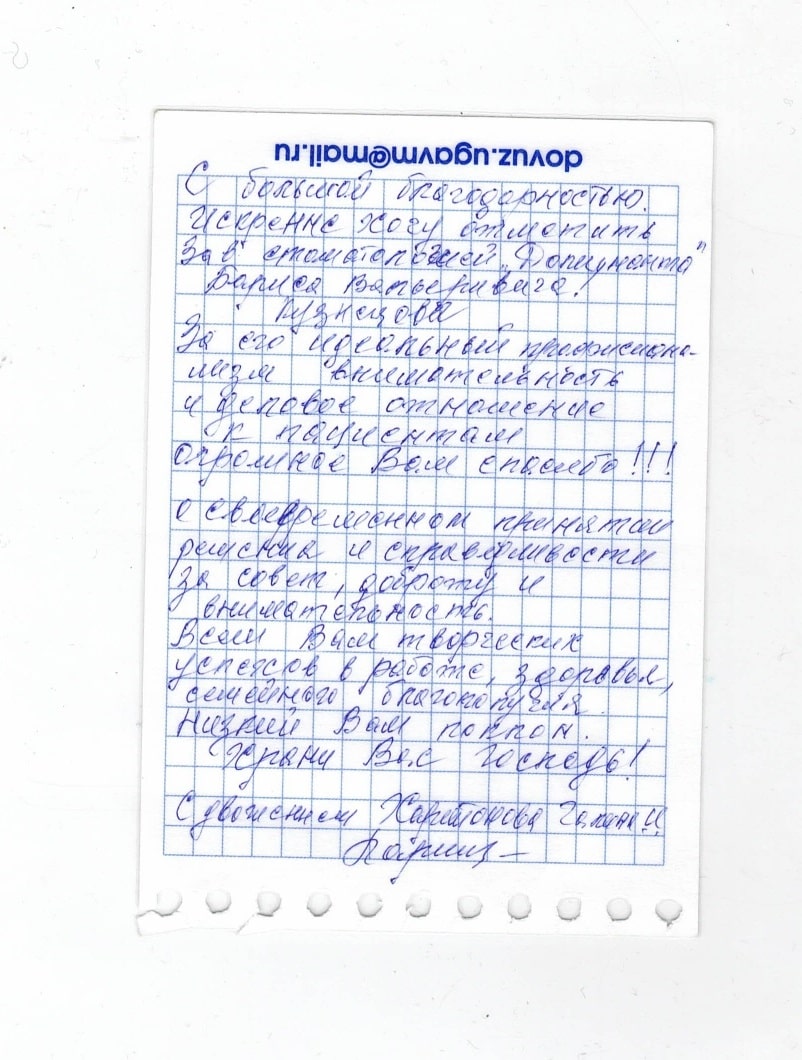 dovuz.ugavm@mail.ru
С большой благодарностью.
Искренне хочу отметить
Зав стоматологией
Бориса Валерьевича!
Кузнецова
За его идеальный профессиона-
лизм внимательность
и деловое отношение
к пациентам
огромное Вам спасибо!!!
о своевременном принятии
решения и справедливости
за совет, доброту и
внимательность.
Всем Вам творческих
успехов в работе, здоровья,
семейного благополучия.
Низкий Вам поклон.
Храни Вас Господь!
С уважением Харитонова Галина!!